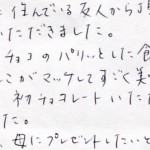 に住んでいる友人から
いただきました。
チョコのパリッとした食
こがマッチしてすごく美
初チョコレートいただ
た。
母にプレゼントしたいと